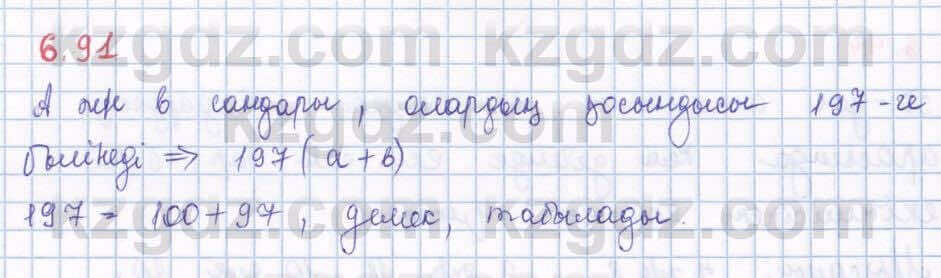 6.91
А және в сандары, олардың қосындысы 197-ге
бөлінеді => 197(а+в)
197 = 100+97, демек, табылады.
kzgdz.com kzgdz.com
kzgdz.com kzgdz.com
kzgdz.com kzgdz.com